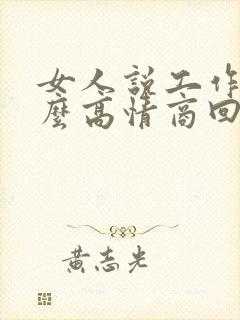 女人说工作
麼高情商回
黄志光